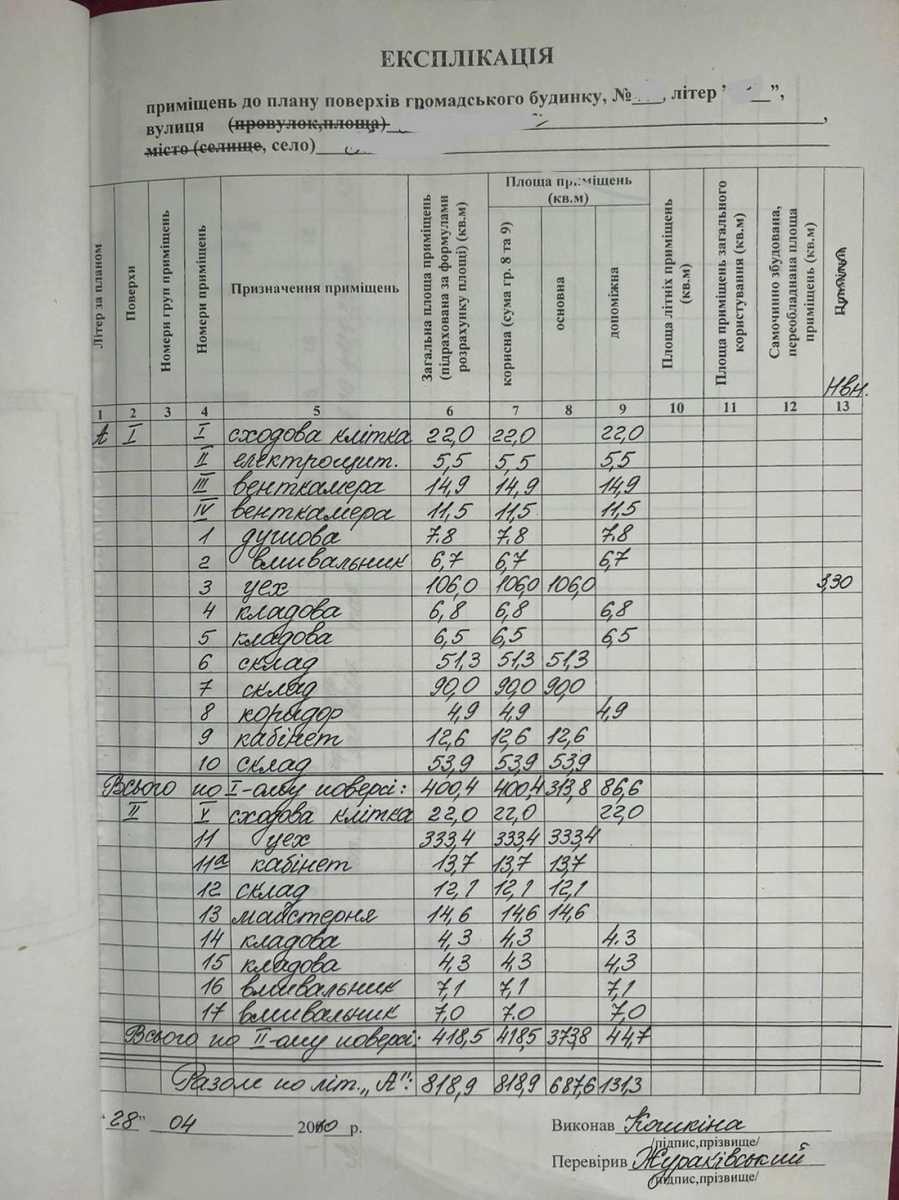 ЕКСПЛІКАЦІЯ
приміщень до плану поверхів громадського будинку, №___, літер "___",
вулиця (провулок,площа)
місто (селище, село)
Літер за планом
Поверхи
Номери груп приміщень
Номери приміщень
Призначення приміщень
Загальна площа приміщень (підрахована за формулами розрахунку площі) (кв.м)
Площа приміщень (кв.м)
корисна (сума гр. 8 та 9)
основна
допоміжна
Площа літніх приміщень (кв.м)
Площа приміщень загального користування (кв.м)
Самочинно збудована, переобладнана площа приміщень (кв.м)
Нвн.
1 2 3 4 5 6 7 8 9 10 11 12 13
А I I сходова клітка 22,0 22,0 22,0
II електрощит. 5,5 5,5 5,5
III венткамера 14,9 14,9 14,9
IV венткамера 11,5 11,5 11,5
1 душова 7.8 7.8 7.8
2 вмивальник 6,7 6,7 6,7
3 цех 106,0 106,0 106,0 3,30
4 кладова 6,8 6,8 6,8
5 кладова 6,5 6,5 6,5
6 склад 51,3 51,3 51,3
7 склад 90,0 90,0 90,0
8 коридор 4,9 4,9 4,9
9 кабінет 12,6 12,6 12,6
10 склад 53,9 53,9 53,9
Всього по I-ому поверсі: 400,4 400,4 313,8 86,6
II V сходова клітка 22,0 22,0 22,0
11 цех 333,4 333,4 333,4
11а кабінет 13,7 13,7 13,7
12 склад 12,1 12,1 12,1
13 майстерня 14,6 14,6 14,6
14 кладова 4,3 4,3 4.3
15 кладова 4,3 4,3 4,3
16 вмивальник 7,1 7,1 7,1
17 вмивальник 7,0 7.0 7,0
Всього по II-ому поверсі: 418,5 418,5 373,8 44,7
Разом по літ. „А": 818,9 818,9 687,6 131,3
"28" 04 2010 р.
Виконав Кошкіна
/підпис,прізвище/
Перевірив Жураківський
/підпис,прізвище/